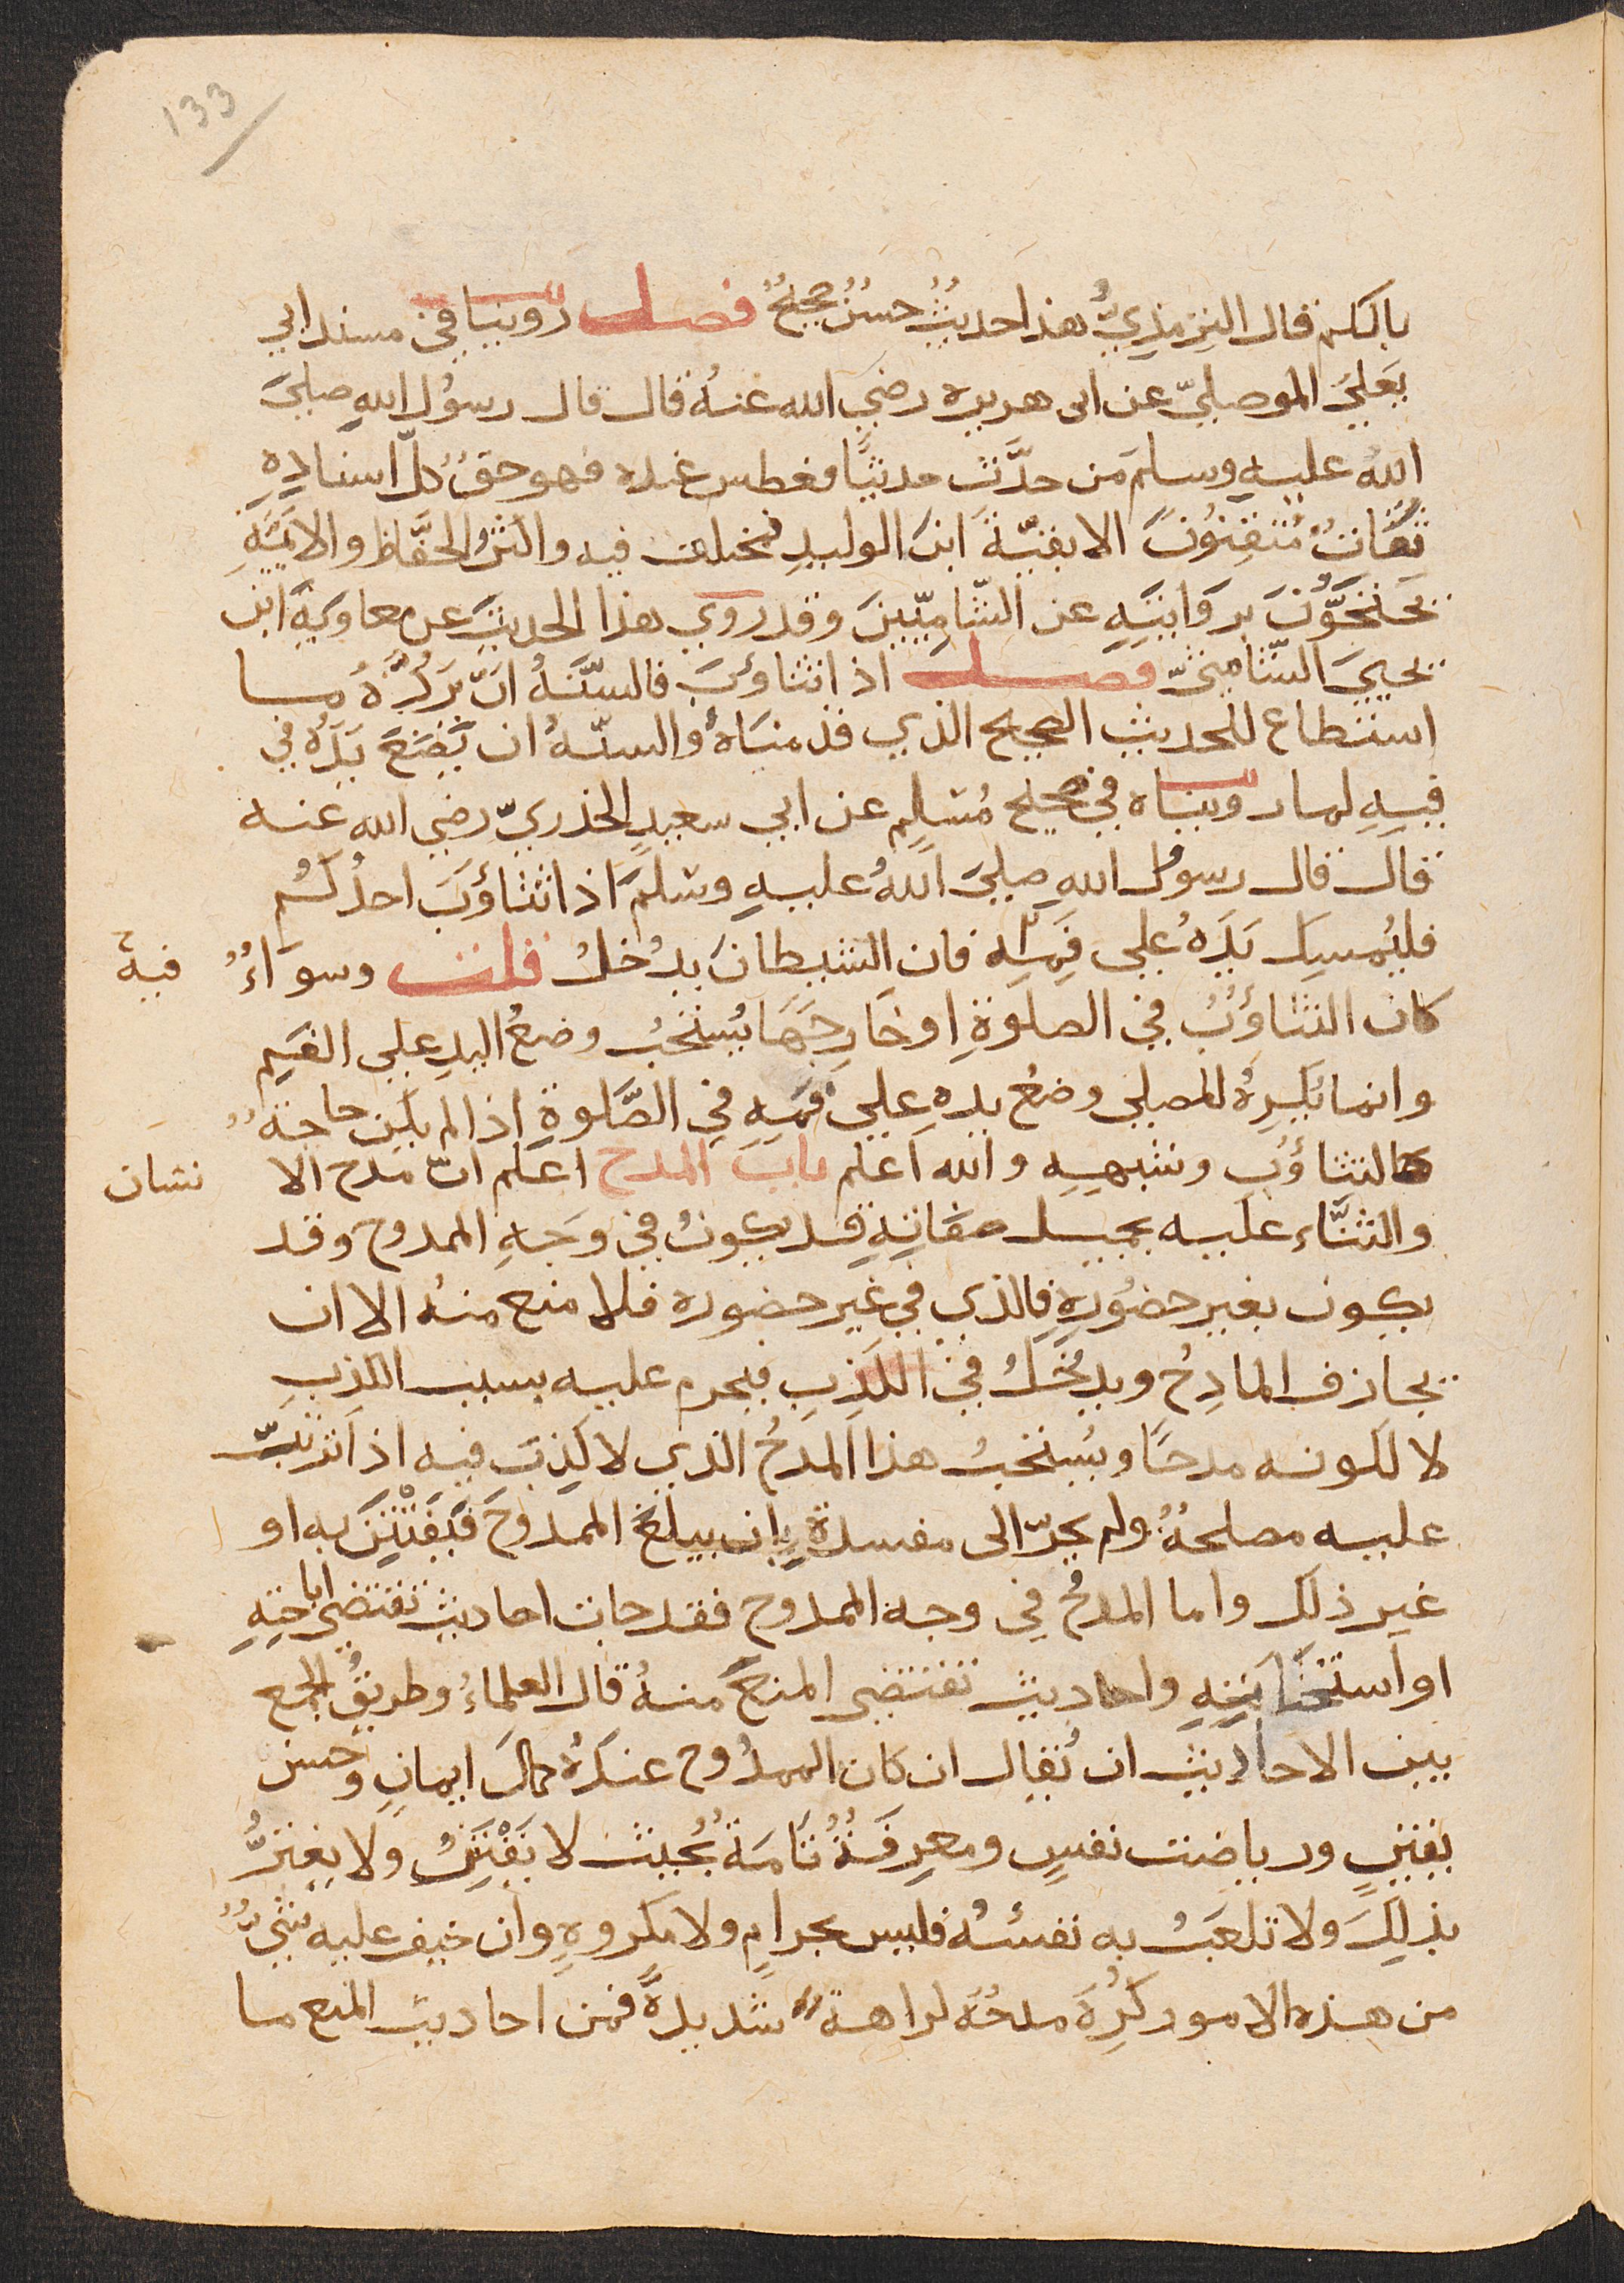 133
بالكم قال الترمذيُّ هذا حديثٌ حسنٌ صحيحٌ فصل روينا في مسند ابي
يَعلي الموصليّ عن ابى هريره رضي الله عنهُ قال قال رسوُل اللهِ صليَ
اللهُ عليهِ وسلم من حدَّث حديثًا فعطس عنده فهو حقٌ كلّ اسنادِهِ
ثقاتٌ مُتقِنوُنَ الا بقيّةَ ابنَ الوليدِ فمختلف فيه واكثرُ الحفّاظ والائمَّةِ
يحتجّوُنَ بروَايتِهِ عن الشّامِيّينَ وقد روي هذا الحديثَ عن معاويَةَ ابن
يحييَ الشّامِيّ فصل اذا تثاوَبَ فالسّنّةُ انَّ يَردَّهُ ما
استطاع للحديث الصحيح الذي قدمنَاهُ والسنّةُ ان يَضَعَ يَدَهُ في
فيهِ لما روينَاه في صحيح مُسلِم عن ابي سعيدٍ الخدريّ رضي الله عنه
قال قال رسوُل اللهِ صليَ اللهُ عليهِ وسَلمَ اذا تثاؤبَ احدُكُم
فليُمسِك يَدَهُ على فَمِه فان الشيطانَ يدُخلُ قلت وسوَاءٌ فيه
كان التثاؤُبُ في الصلوةِ او خَارِجَهَا يُستَحَبُ وضعُ اليدِ علي الفَمِ
وانما يُكرِهُ للمصلي وضعُ يدهِ عليَ فَمِهِ في الصَّلوةِ اذا لم يكن حاجةٌ
كالتثاؤُب وشبهِهِ والله اعلم باب المدح اعلم انّ مدح الا نسان
والثنَّاء عليه بجميل صفَاتِهِ قد يكونُ في وَجهِ الممدوح وقد
يكون بغير حضُورِهِ فالذي في غير حضوره فلا منع منهُ الا ان
يجازف المادِحُ ويدخُلُ في الكَذِبِ فيحرم عليه بسبب الكذبِ
لا لكونه مدحًا ويُستحبُ هذا المدحُ الذي لا كَذِبَ فيه اذا ترتّبَ
عليه مصلحةٌ ولم يجرّ الى مفسدةٍ بِان يبلغَ الممدوحَ فَيَفْتَتِنَ به او
غير ذلك واما المدحُ في وجه الممدوح فقد جات احاديث تقتضى اباحتِهِ
او استحبَابِهِ واحاديث تقتضى المنعَ منهُ قال العلماءُ وطريقُ الجمع
بين الاحاديث ان يُقال ان كان الممدُوح عندهُ كمالَ ايمانٍ وحسن
يقينٍ ورياضت نفسٍ ومعرِفَةٌ تَامَةٌ بُحيث لا يَفْتَتِنُ ولا يغترُّ
بذلِكَ ولا تلعَبُ به نفسُهُ فليس بحرامٍ ولا مكروهٍ وان خيف عليه شيٌ
من هذه الامور كُرِهَ مدحُهُ كراهةً شديدةً فمن احاديث المنع ما